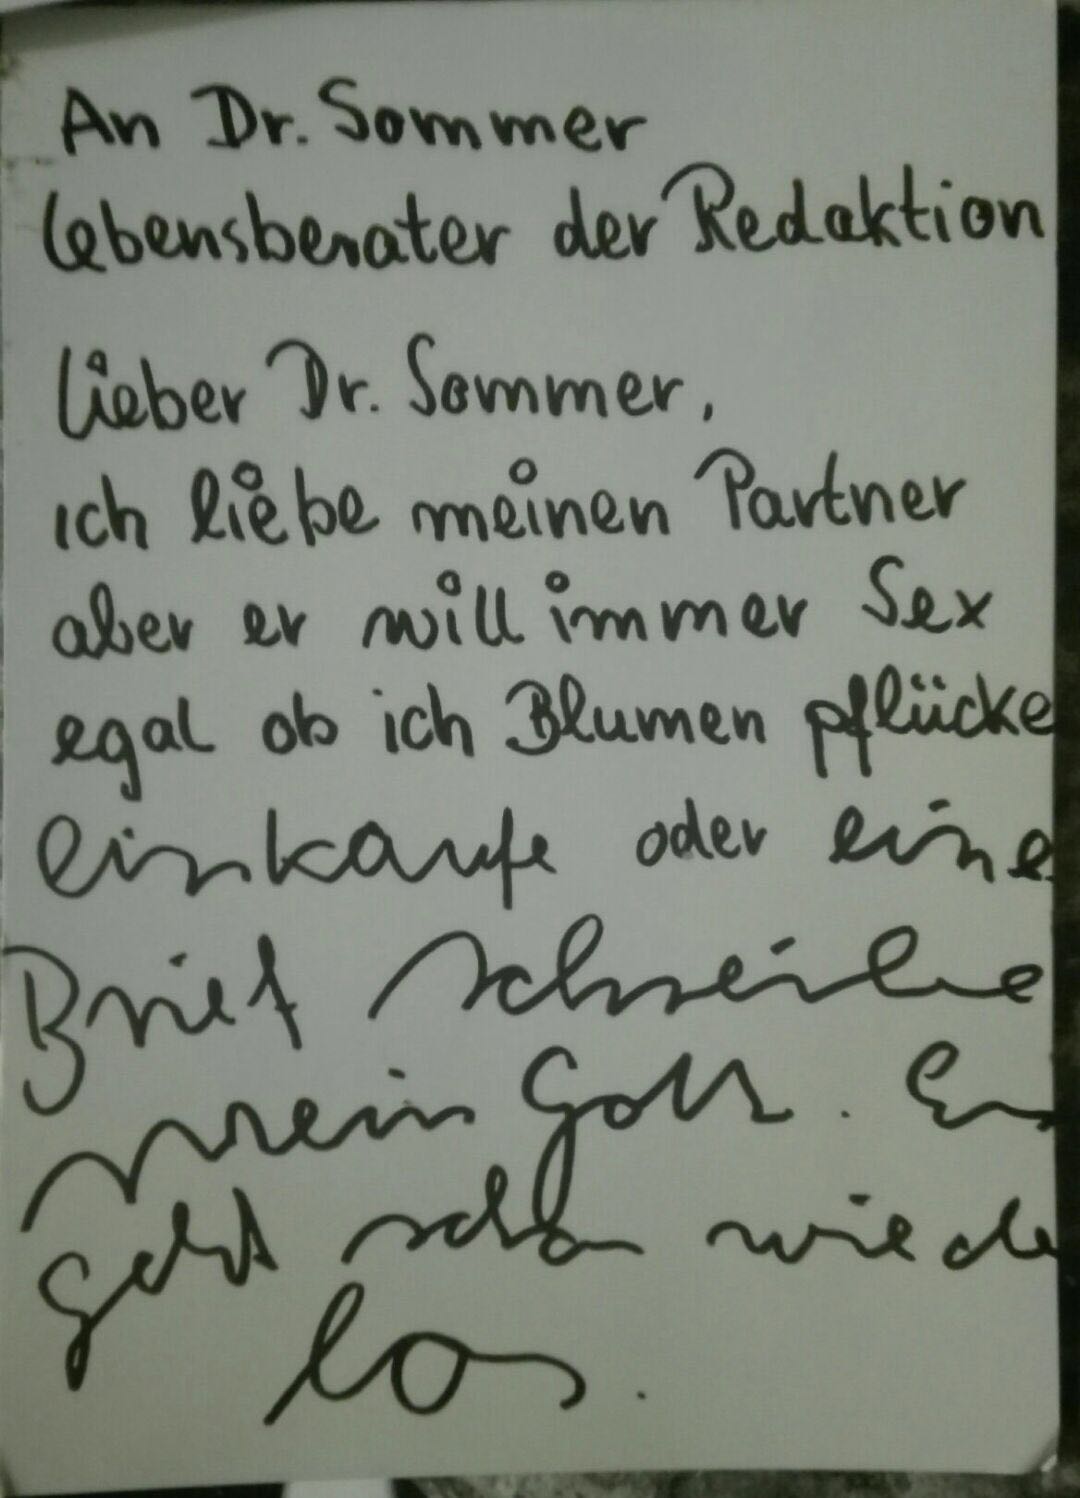 An Dr. Sommer
Lebensberater der Redaktion
Lieber Dr. Sommer,
ich liebe meinen Partner
aber er will immer Sex
egal ob ich Blumen pflücke
einkaufe oder eine
Brief schreibe
mein Gott. Es
geht schon wiede
los.